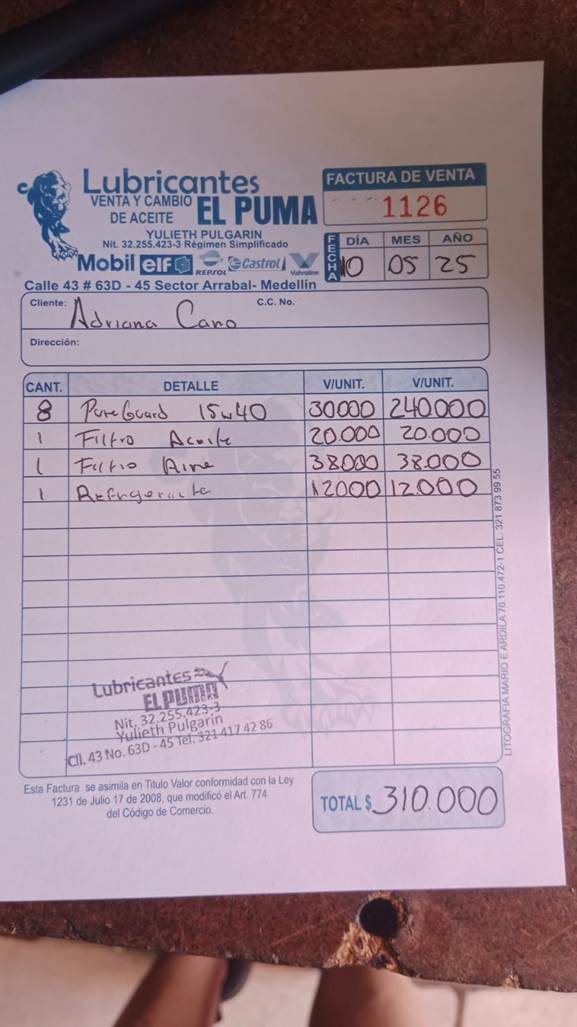 Lubricantes
VENTA Y CAMBIO
DE ACEITE EL PUMA
YULIETH PULGARIN
Nit. 32.255.423-3 Régimen Simplificado
Mobil elf REPSOL Castrol Valvoline
Calle 43 # 63D - 45 Sector Arrabal- Medellín
FACTURA DE VENTA
1126
FECHA DÍA MES AÑO
10 05 25
Cliente: Adriana Cano C.C. No.
Dirección:
CANT. DETALLE V/UNIT. V/UNIT.
8 PureGuard 15w40 30000 240.000
1 Filtro Aceite 20.000 20.000
1 Filtro Aire 38000 38.000
1 Refrigerante 12000 12.000
Lubricantes
EL PUMA
Nit. 32.255.423-3
Yulieth Pulgarin
Cll. 43 No. 63D - 45 Tel. 321 417 42 86
Esta Factura se asimila en Titulo Valor conformidad con la Ley
1231 de Julio 17 de 2008, que modificó el Art. 774
del Código de Comercio.
TOTAL $ 310.000
LITOGRAFIA MARIO E ARDILA 70.110.472-1 CEL. 321 873 99 55